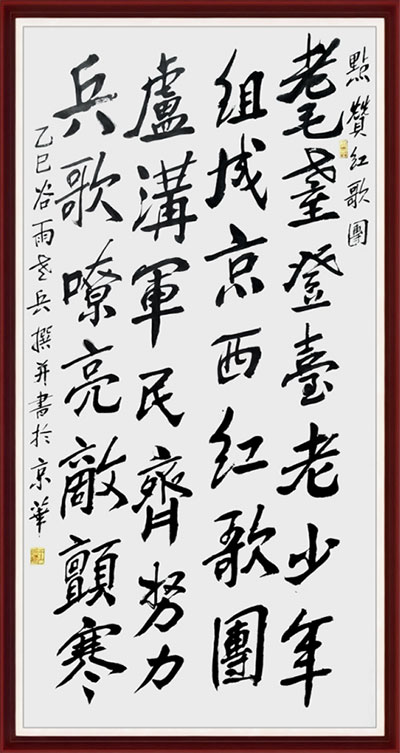 點贊红歌團
耄耋登臺老少年
组成京西红歌團
盧溝軍民齊努力
兵歌嘹亮敵顫寒
乙巳谷雨老兵撰并書於京華